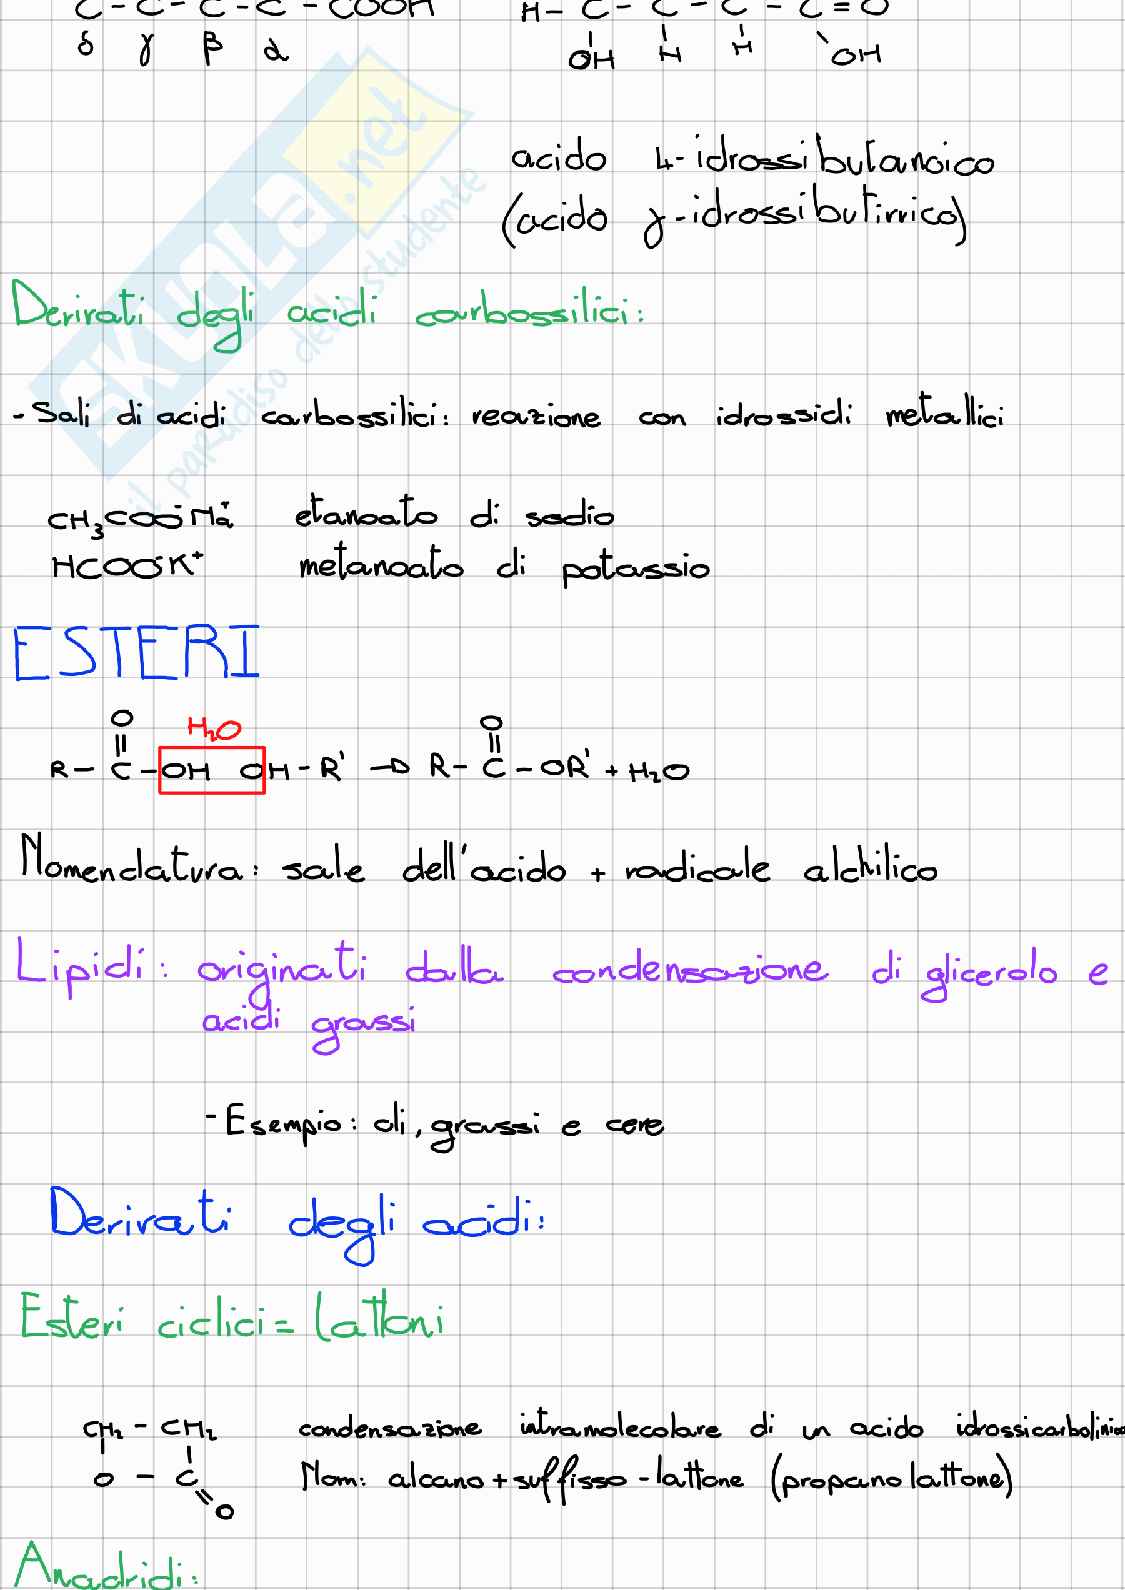 C - C - C - C - COOH
δ γ β α
H - C - C - C - C = O
OH H H OH
acido 4-idrossibutanoico
(acido γ-idrossibutirrico)
Derivati degli acidi carbossilici:
- Sali di acidi carbossilici: reazione con idrossidi metallici
CH₃COO⁻Na⁺ etanoato di sodio
HCOO⁻K⁺ metanoato di potassio
ESTERI
O H₂O O
R - C - OH OH - R' → R - C - OR' + H₂O
Nomenclatura: sale dell'acido + radicale alchilico
Lipidi: originati dalla condensazione di glicerolo e
acidi grassi
- Esempio: oli, grassi e cere
Derivati degli acidi:
Esteri ciclici = lattoni
CH₂ - CH₂ condensazione intramolecolare di un acido idrossicarbolinico
O - C Nom: alcano + suffisso -lattone (propanolattone)
O
Anadridi:
SKUOLA.net
il paradiso dello studente